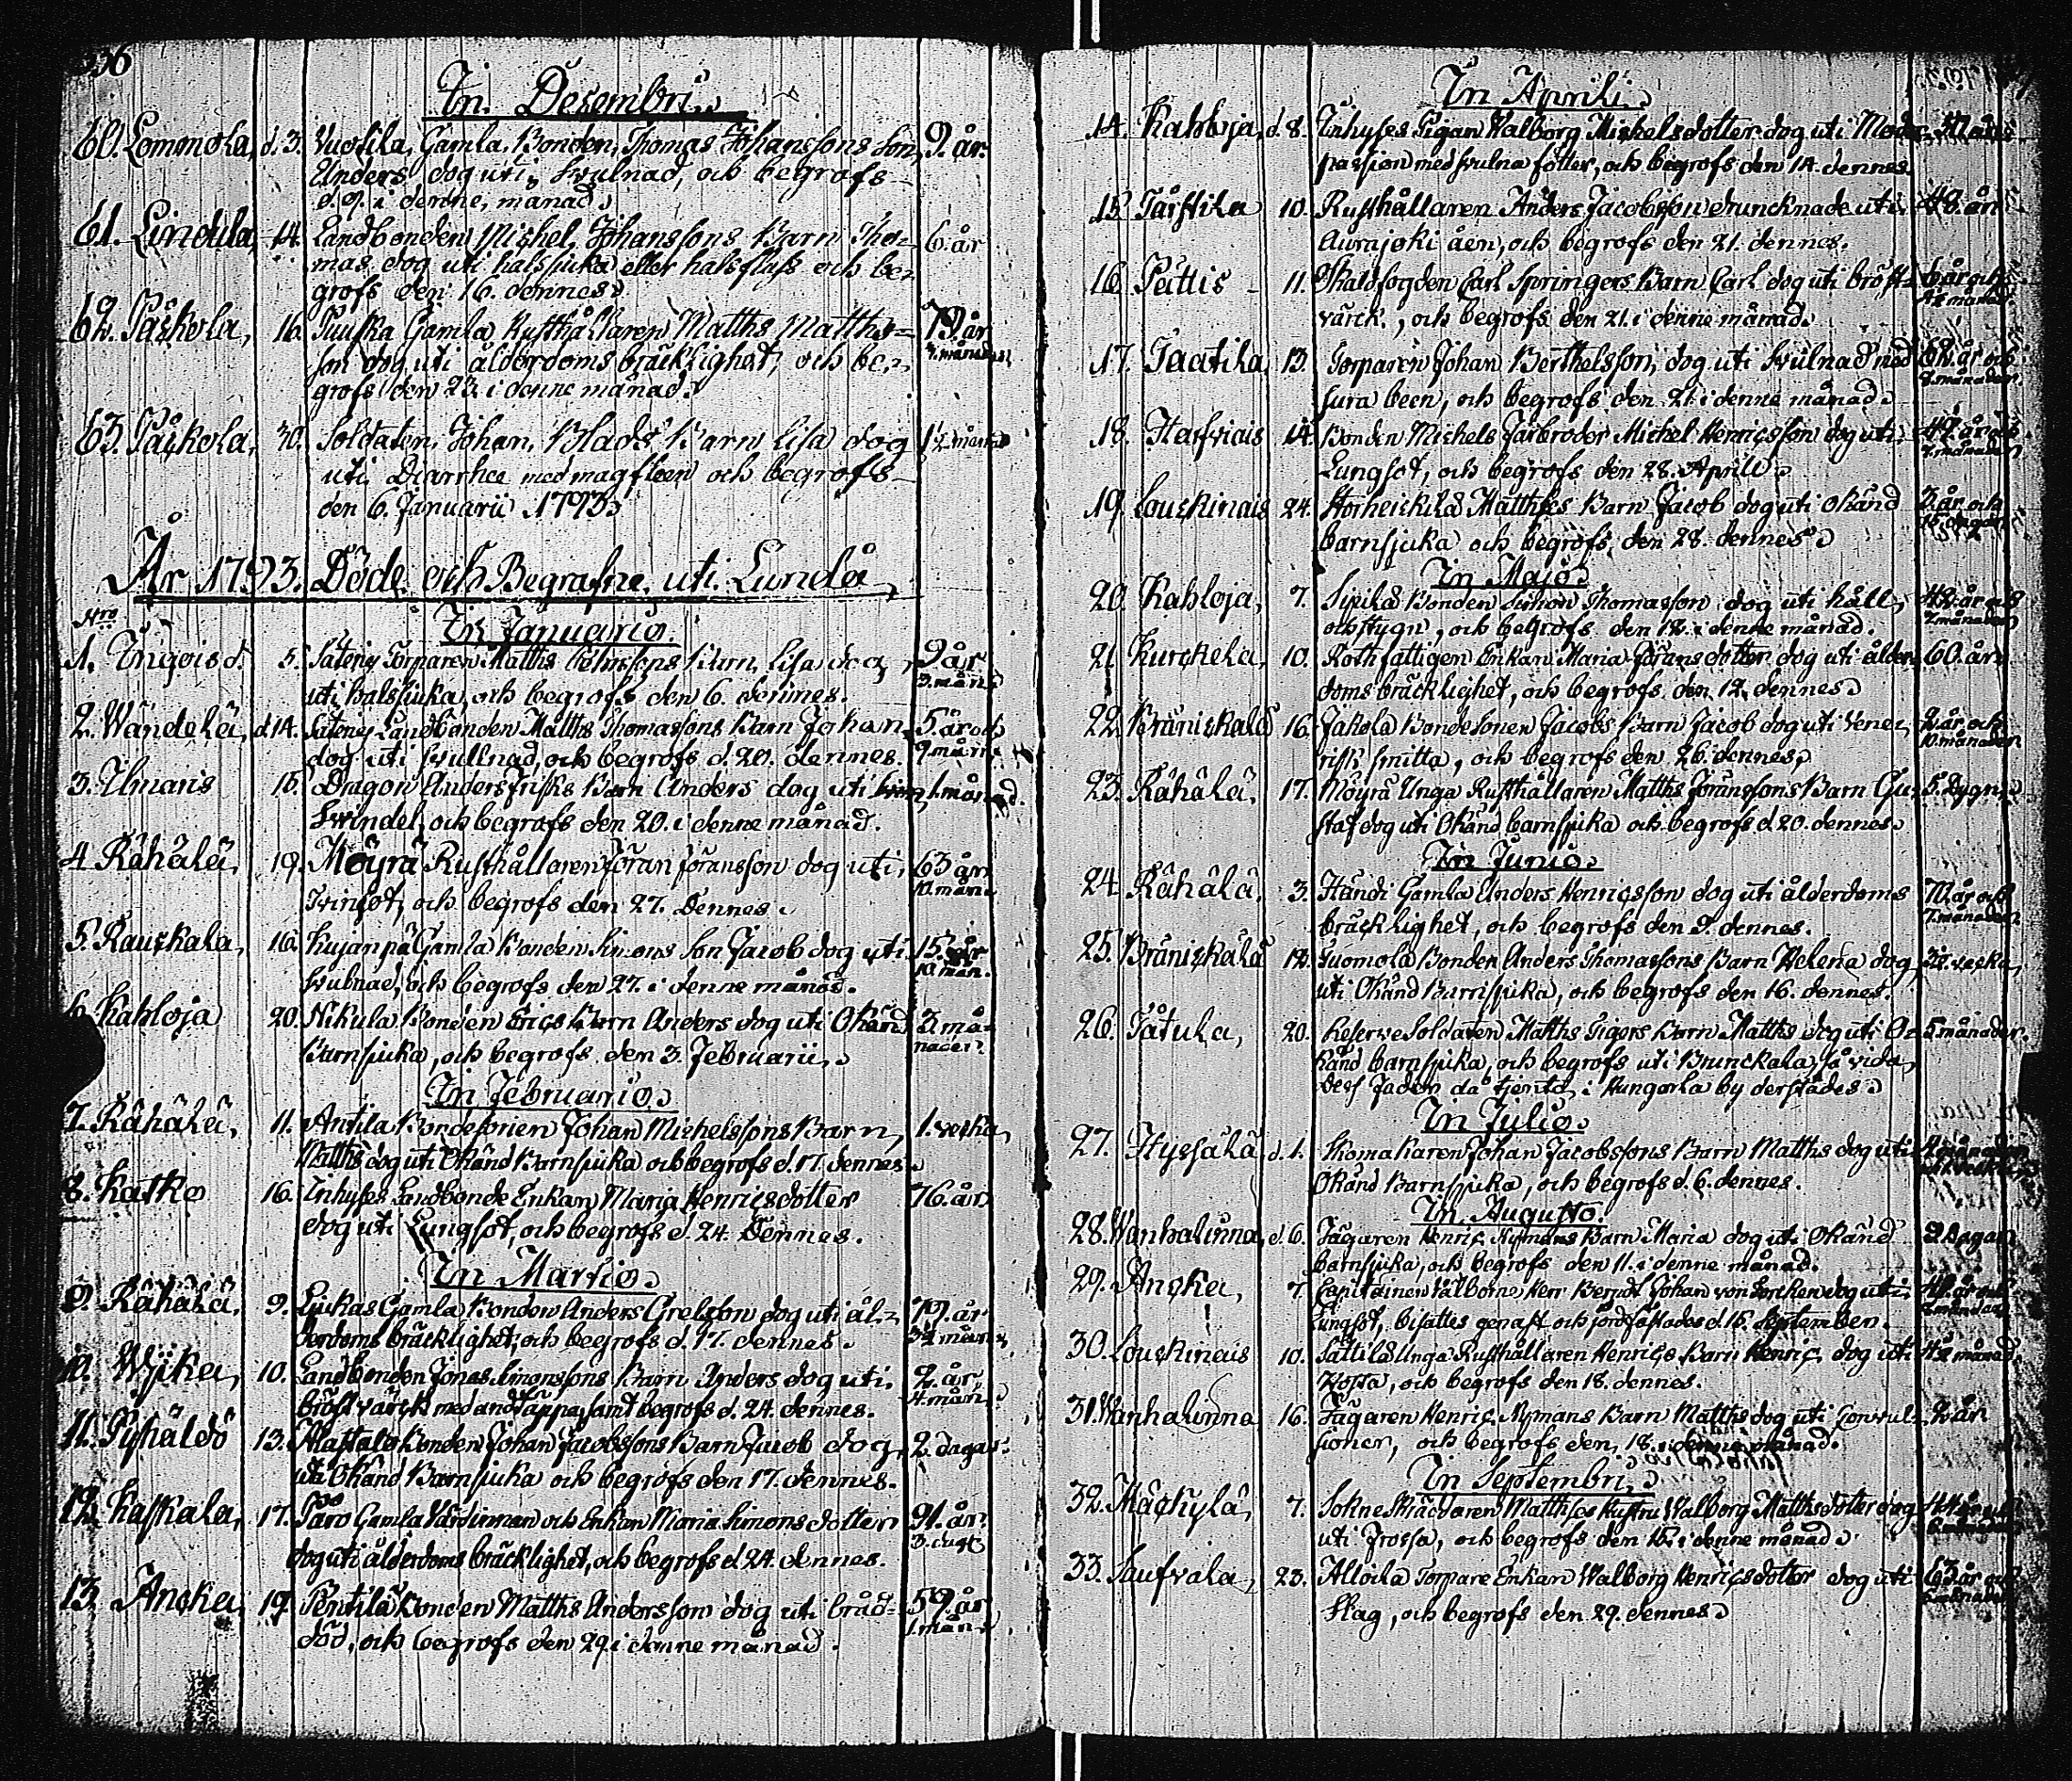 In Desembri.
60. Lemmola, d. 3. Vuolila, Gamla, Bonden, Thomas Johanssons Son, 9. år.
Anders dog uti, Svulnad, och begrofs
d. 9. i denne, månad.
61. Lindula, 14. Landbonden Michel, Johanssons Barn Tho= 6. år
mas dog uti halssjuka eller halsflass och be=
grofs den 16. dennes.
62. Påskola, 16. Gamla Rusthållaren Matths Matths= 79. år
son dog uti ålderdoms bräcklighet, och be=
grofs den 23. i denne månad.
63. Påskola, 30. Soldaten, Johan, Blads Barn Lisa dog
uti Diarrhee med magsteen och begrofs
den 6. Januarii 1793.
År 1793. Döde och Begrafne uti Lundå
Nro
In Januario.
1. Ingois d. 5. Torparen Matths Barn, Lisa dog 9 år
3. mån.
uti halssjuka, och begrofs den 6. dennes.
2. Wändelä, d. 14. Landbonden Matths Thomassons Barn Johan 5. år och
9. mån.
dog uti Svullnad, och begrofs d. 20. dennes.
3. Ilmaris 15. Dragon Anders Frisks Barn Anders dog uti 1. månad.
Svindel, och begrofs den 20. i denne månad.
4. Rähälä, 19. Möyrä Rusthållaren Jöran Jöransson dog uti 63 år
10. mån.
Tvinsot, och begrofs den 27. Dennes.
5. Rauskala, 16. Kujanpä Gamla Bonden Simons Son Jacob dog uti 15. år
10. mån.
Svulnad, och begrofs den 27. i denne månad.
6. Kahloja 20. Nikula Bonden Erics Barn Anders dog uti Okänd 3. må=
nader.
Barnsjuka, och begrofs den 3. Februarii.
In Februario.
7. Rähälä, 11. Antila Bondesonen Johan Michelssons Barn 1. vecka
Matths dog uti Okänd Barnsjuka och begrofs d. 17. dennes
8. Katko 16. Inhyses Landbonde Enkan Maria Henricsdotter 76. år
dog uti Lungsot, och begrofs d. 24. Dennes.
In Martio.
9. Rähälä, 9. Lukas Gamla Bonden Anders Grelsson dog uti ål= 79. år
derdoms bräcklighet, och begrofs d. 17. dennes.
10. Wijka, 10. Landbonden Jonas Simonssons Barn Anders dog uti 2. år
4. mån.
bröstvärck med andtäppa, samt begrofs d. 24. dennes.
11. Pyhäldö 13. Bonden Johan Jacobssons Barn Jacob dog 2. dagar.
uti Okänd Barnsjuka och begrofs den 17. dennes.
12. Kaskala, 17. Päro Gamla Enkan Maria Simons dotter 91. år
dog uti ålderdoms bräcklighet, och begrofs d. 24. dennes.
13. Ancka, 19. Pentilä Bonden Matths Andersson dog uti bråd= 59. år
1. mån.
död, och begrofs den 29. i denne månad.
In Aprili.
14. Kahloja, d. 8. Inhyses Pigan Walborg Michels dotter dog uti Moder
passion med svulna fötter, och begrofs den 14. dennes.
15. Tårstila 10. Rusthållaren Anders Jacobsson druncknade uti 48. år
Aurajoki åen, och begrofs den 21. dennes.
16. Pättis 11. Carl Springers Barn Carl dog uti bröst=
värck, och begrofs den 21. i denne månad.
17. Taatila, 13. Torparen Johan Berthelsson, dog uti Svulnad med 62. år och
8. månader.
sura been, och begrofs den 21. i denne månad.
18. Harfvais 14. Bonden Michels Farbroder Michel Henricsson dog uti
Lungsot, och begrofs den 28. Aprill.
19. Louckinais 24. Storheickilä Matthses Barn Jacob dog uti Okänd 3. år och
barnsjuka och begrofs den 28. dennes.
In Majo.
20. Kahloja, 7. Sipilä Bonden Simon Thomasson dog uti håll,
och stygn, och begrofs den 12. i denne månad.
21. Kurckela, 10. Rothfattigen Enkan Maria Jörans dotter dog uti ålder= 60. år.
doms bräcklighet, och begrofs den 12. dennes.
22. Bräniskala 16. Jakola Bondesonen Jacobs Barn Jacob dog uti Vene= 2. år och
10. månader
risk smitta, och begrofs den 26. dennes.
23. Rähälä, 17. Möyrä Unga Rusthållaren Matths Jöranssons Barn Gu= 5. Dygn.
staf dog uti Okänd barnsjuka och begrofs d. 20. dennes.
In Junio.
24. Rähälä, 3. Händi Gamla Anders Henricsson dog uti ålderdoms 70. år och
7. månader
bräcklighet, och begrofs den 9. dennes.
25. Bräniskala 12. Tuomola Bonden Anders Thomassons Barn Helena dog
uti Okänd Barnsjuka, och begrofs den 16. dennes.
26. Tåtula, 20. Reserve Soldaten Matths Tigers Barn Matths dog uti O= 5. månader.
känd barnsjuka, och begrofs uti Brunckala, så vida,
dess Fader då tjente i Hungerla by derstädes.
In Julio.
27. Hypsälä d. 1. Skomakaren Johan Jacobssons Barn Matths dog uti
Okänd Barnsjuka, och begrofs d. 6. dennes.
In Augusto
28. Wanhalinna, d. 6. Jägaren Henric Nymans Barn Maria dog uti Okänd 2 Dagar
barnsjuka, och begrofs den 11. i denne månad.
29. Ancka, 7. Capitainen Välborne Herr Berndt Johan von dog uti
Lungsot, bisattes genast och jordfästades d. 15. September.
30. Louckinais 10. Sattila Unga Rusthållaren Henrics Barn Henric dog uti
Kopia, och begrofs den 18. dennes.
31. Wanhalinna 16. Jägaren Henric Nymans Barn Matths dog uti Convul=
sioner, och begrofs den 18. i denne månad.
In Septembri.
32. Mäckylä, 7. Sokne Skräddaren Matthses Hustru Walborg Matthsdotter dog
uti Frossa, och begrofs den 15. i denne månad.
33. Saufvala, 23. Alloila Torpare Enkan Walborg Henricsdotter dog uti 63. år och
Slag, och begrofs den 29. dennes.